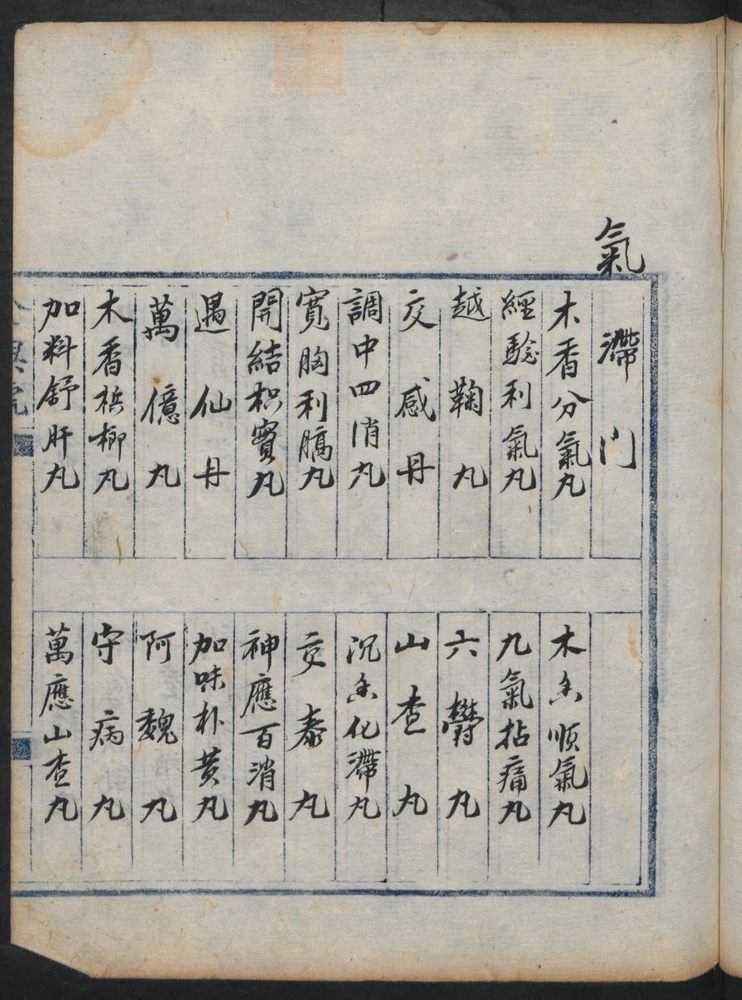 氣滯门
木香分氣丸
經驗利氣丸
越鞠丸
交感丹
調中四消丸
寬胸利膈丸
開結枳實丸
遇仙丹
萬億丸
木香梹柳丸
加料舒肝丸
木香順氣丸
九氣拈痛丸
六欝丸
山查丸
沉香化滯丸
交泰丸
神應百消丸
加味朴黄丸
阿魏丸
守病丸
萬應山查丸